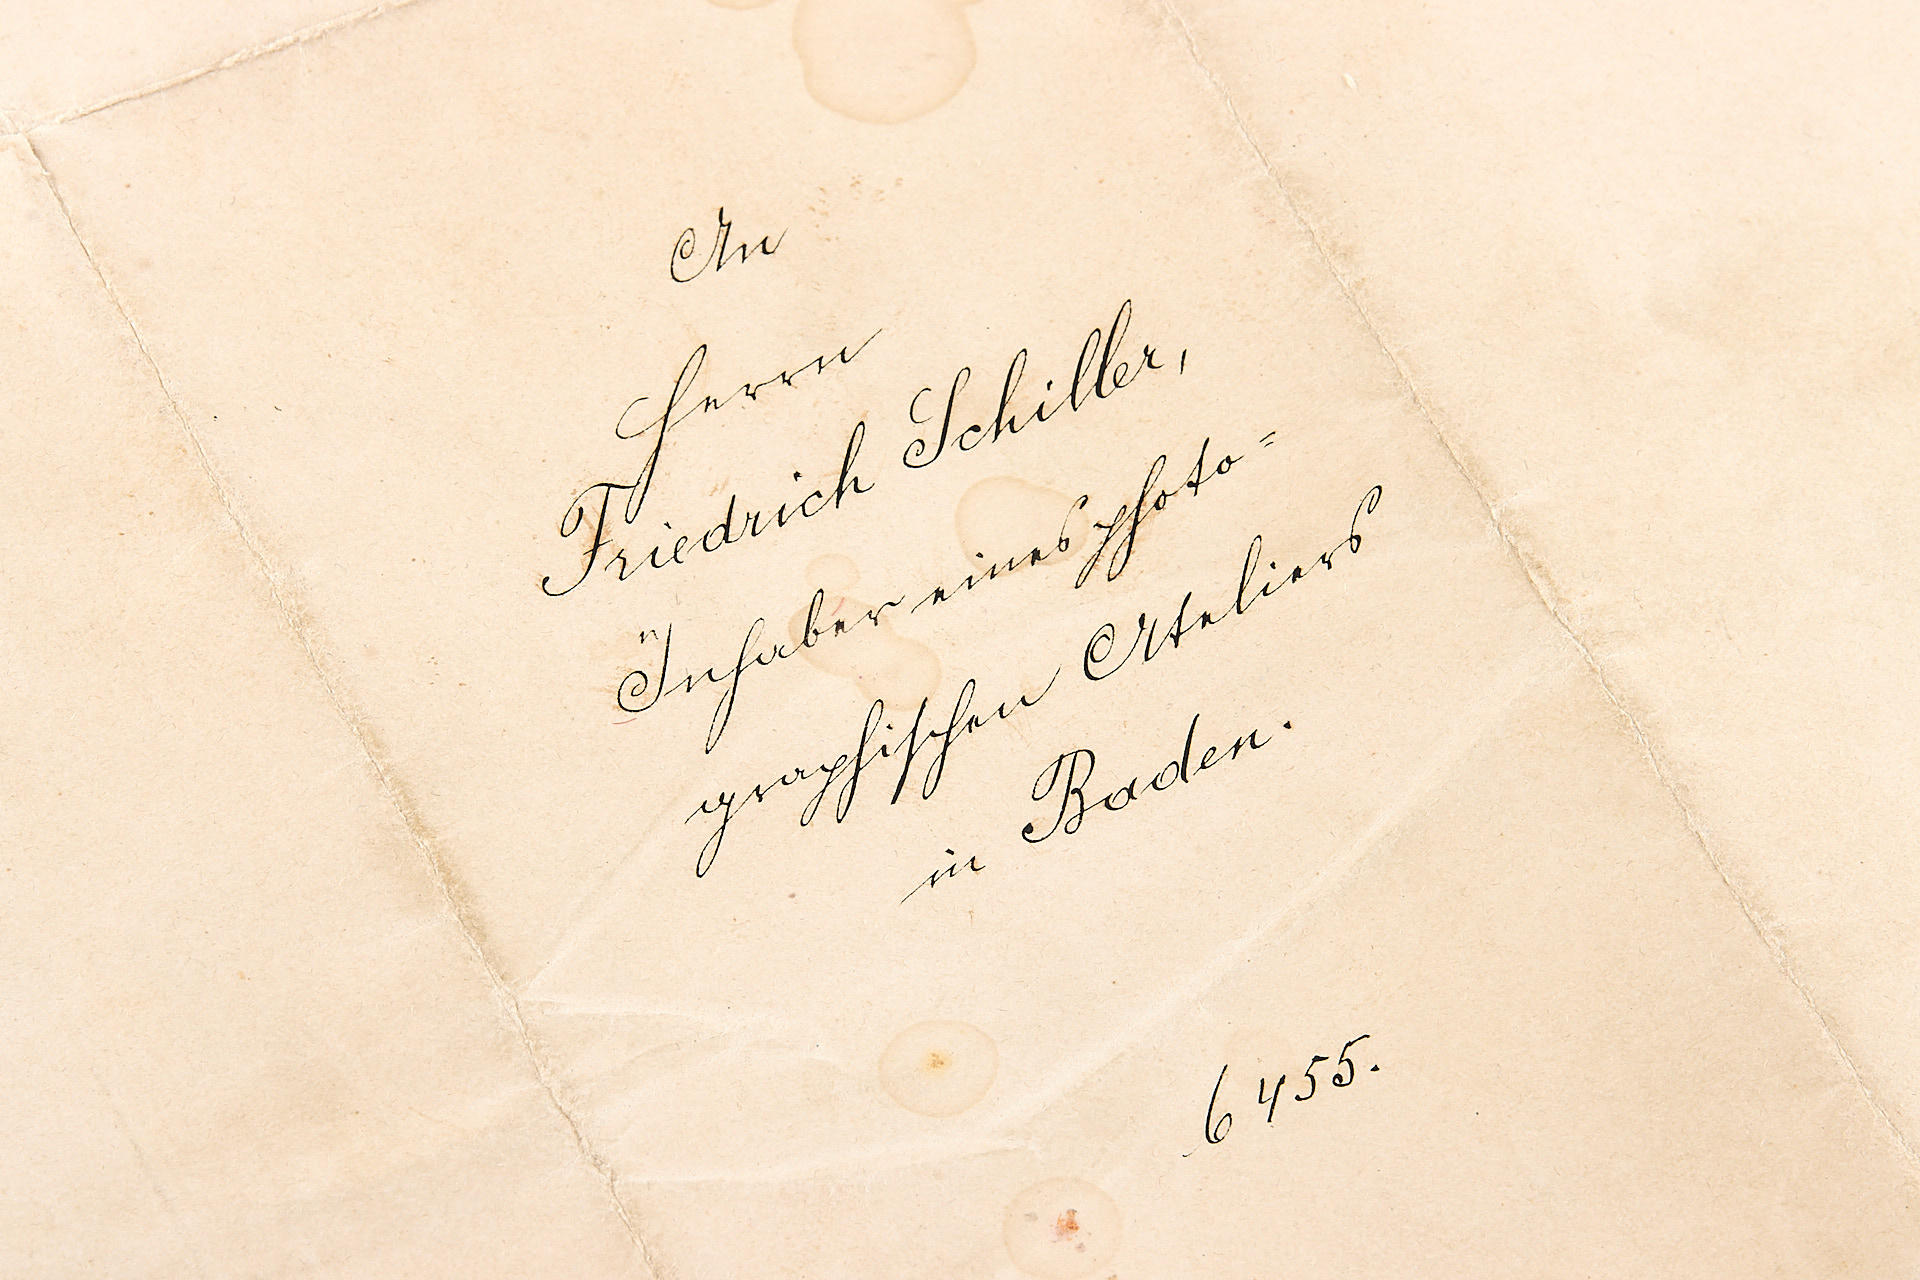 An
Herrn
Friedrich Schiller,
Inhaber eines photo=
graphischen Ateliers
in Baden.
6455.